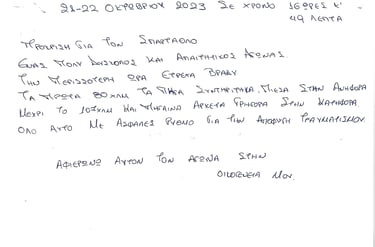 21-22 ΟΚΤΩΒΡΙΟΥ 2023 ΣΕ ΧΡΟΝΟ 36 ΩΡΕΣ Κ'
49 ΛΕΠΤΑ
ΓΙΑ ΤΟΝ ΣΠΑΡΤΑΘΛΟ
ΕΝΑΣ ΠΟΛΥ ΔΥΣΚΟΛΟΣ ΚΑΙ ΑΠΑΙΤΗΤΙΚΟΣ ΑΓΩΝΑΣ
ΤΗΝ ΠΕΡΙΣΣΟΤΕΡΗ ΩΡΑ ΕΤΡΕΧΑ ΒΡΑΔΥ
ΤΑ ΠΡΩΤΑ 80ΧΛΜ ΤΑ ΠΗΓΑ ΣΥΝΤΗΡΗΤΙΚΑ, ΠΙΕΣΑ ΣΤΗΝ ΑΝΗΦΟΡΑ
ΜΕΧΡΙ ΤΟ ΧΛΜ ΚΑΙ ΠΗΓΑΙΝΑ ΑΡΚΕΤΑ ΓΡΗΓΟΡΑ ΣΤΗΝ ΚΑΤΗΦΟΡΑ
ΟΛΟ ΑΥΤΟ ΜΕ ΑΣΦΑΛΕΣ ΡΥΘΜΟ ΓΙΑ ΤΗΝ ΑΠΟΦΥΓΗ ΤΡΑΥΜΑΤΙΣΜΟΥ.
ΑΦΙΕΡΩΝΩ ΑΥΤΟΝ ΤΟΝ ΑΓΩΝΑ ΣΤΗΝ
ΟΙΚΟΓΕΝΕΙΑ ΜΟΥ.